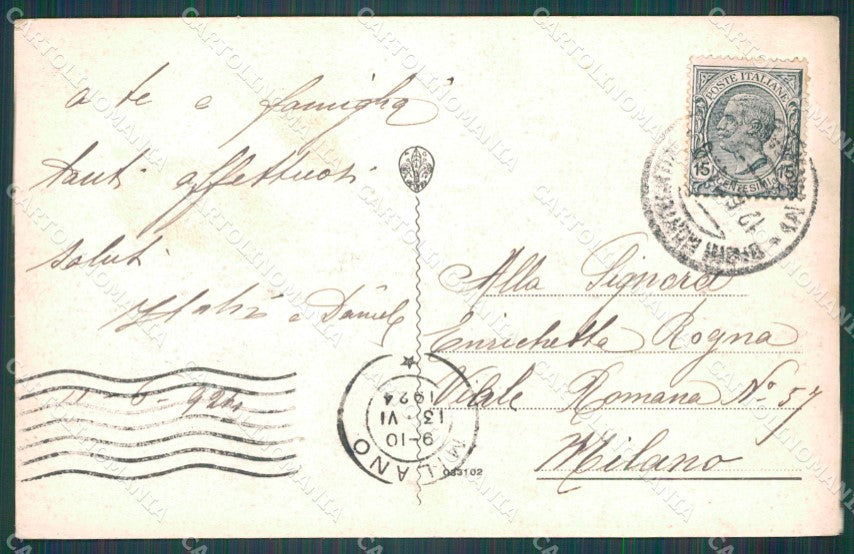 a te e famiglia
tanti affettuosi
saluti
e Daniel
11-6-924
Alla Signora
Enrichetta Rogna
Viale Romana No 57
Milano
POSTE ITALIANE
15 15
CENTESIMI
MILANO
9-10
13·VI
1924
033102
CARTOLINOMANIA